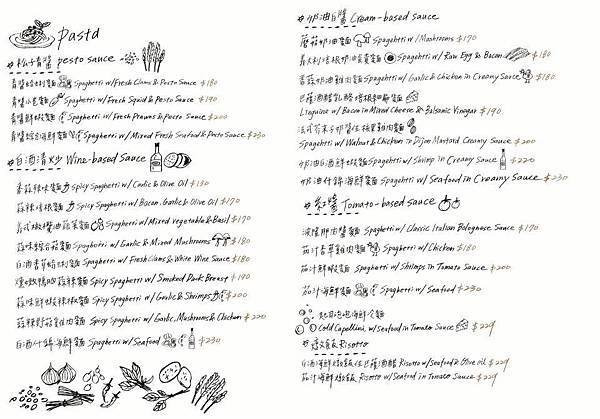 Pasta
松子青醬 pesto sauce
青醬蛤蜊麵 Spaghetti w/Fresh Clams & Pesto Sauce $180
青醬小卷麵 Spaghetti w/Fresh Squid & Pesto Sauce $190
青醬鮮蝦麵 Spaghetti w/ Fresh Prawns & Pesto Sauce $200
青醬綜合海鮮麵 Spaghetti w/ Mixed Fresh Seafood & Pesto Sauce $230
白酒清炒 Wine-based Sauce
香蒜辣味麵 Spicy Spaghetti w/ Garlic & Olive Oil $130
蒜辣培根麵 Spicy Spaghetti w/ Bacon, Garlic & Olive Oil $170
Spaghetti w/ Mixed Vegetable & Basil $170
Spaghetti w/ Garlic & Mixed Mushrooms $180
白酒香草蛤蜊麵 Spaghetti w/ Fresh Clams & White Wine Sauce $180
Spicy Spaghetti w/ Smoked Duck Breast $190
蒜味鮮蝦辣椒麵 Spicy Spaghetti w/ Garlic & Shrimps $200
蒜辣野菇雞肉麵 Spicy Spaghetti w/ Garlic, Mushrooms & Chicken $220
白酒什錦海鮮麵 Spaghetti w/ Seafood $230
奶油白醬 Cream-based Sauce
蘑菇奶油麵 Spaghetti w/ Mushrooms $170
義大利培根奶油蛋黃麵 Spaghetti w/ Raw Egg & Bacon $180
香蒜奶油雞肉麵 Spaghetti w/ Garlic & Chicken in Creamy Sauce $180
巴薩米醋乳酪培根細扁麵
Linguine w/ Bacon in Mixed Cheese & Balsamic Vinegar $190
法式芥末籽奶醬核果雞肉麵
Spaghetti w/ Walnut & Chicken in Dijon Mustard Creamy Sauce $200
奶油白酒鮮蝦麵 Spaghetti w/ Shrimp in Creamy Sauce $220
奶油什錦海鮮麵 Spaghetti w/ Seafood in Creamy Sauce $230
紅醬 Tomato-based sauce
波隆那肉醬麵 Spaghetti w/ Classic Italian Bolognese Sauce $170
茄汁香草雞肉麵 Spaghetti w/ Chicken $180
茄汁鮮蝦麵 Spaghetti w/ Shrimps in Tomato Sauce $200
茄汁海鮮麵 Spaghetti w/ Seafood $230
海鮮冷麵
Cold Capellini w/ Seafood in Tomato Sauce $229
燉飯 Risotto
Risotto w/ Seafood & Olive oil $229
茄汁海鮮燉飯 Risotto w/ Seafood in Tomato Sauce $229